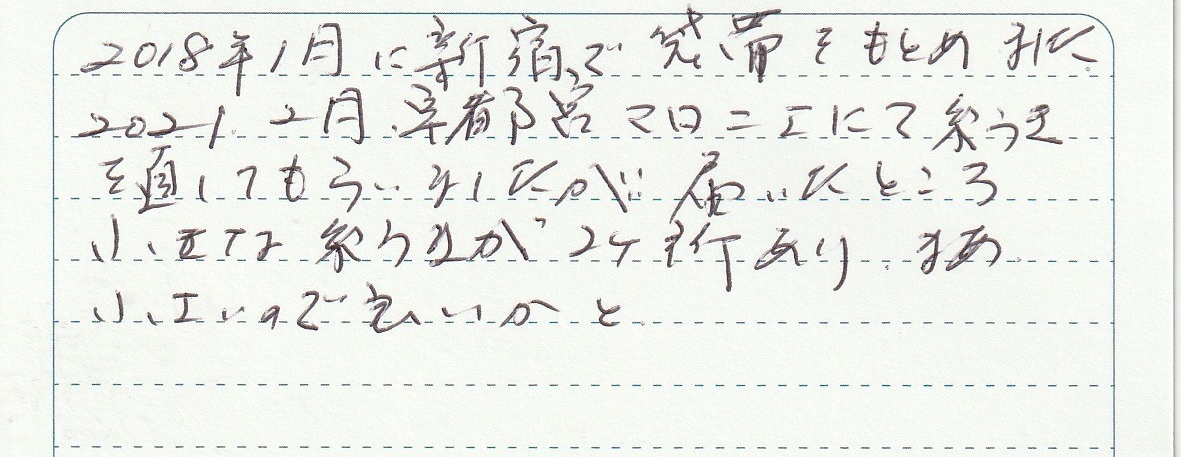 2018年1月に新宿で袋帯をもとめました
2021.2月.宇都宮マロニエにて糸うき
を直してもらいましたが届いたところ
小さな糸うきが2ヶ所あり.まあ
小さいので良いかと